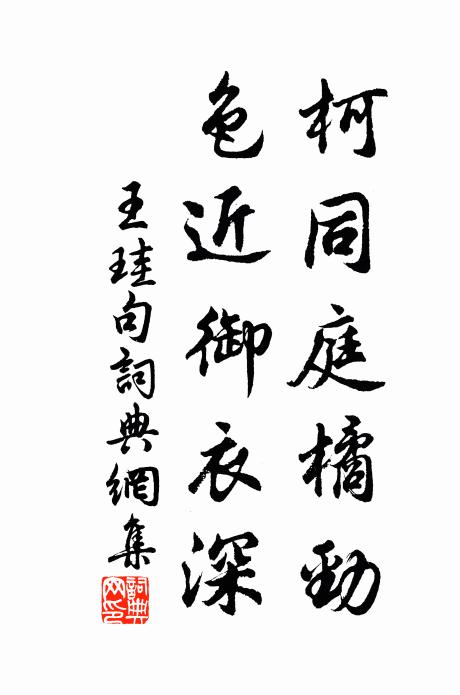 柯同庭橘勁
色近御衣深
王珪句詞典網集
詞典網印